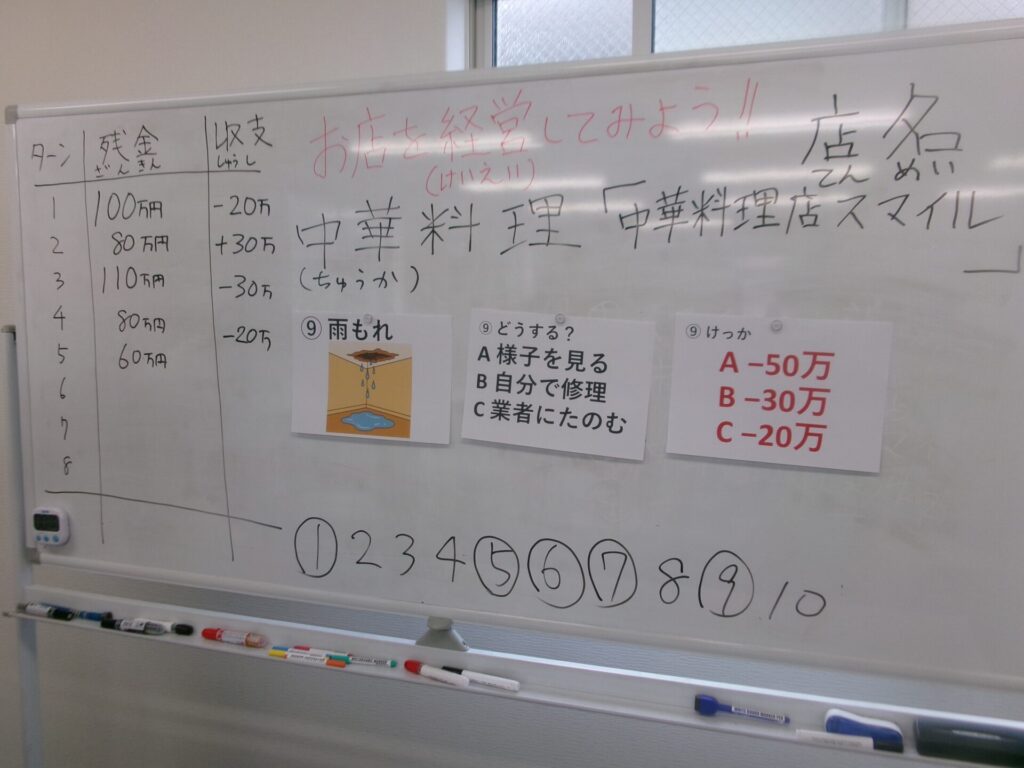 お店を経営してみよう!!
(けいえい)
店名
てんめい
中華料理「中華料理店スマイル」
(ちゅうか)
ターン 残金 収支
ざんきん しゅうし
1 100万円 -20万
2 80万円 +30万
3 110万円 -30万
4 80万円 -20万
5 60万円
6
7
8
⑨ 雨もれ
⑨ どうする?
A 様子を見る
B 自分で修理
C 業者にたのむ
⑨ けっか
A −50万
B −30万
C −20万
① 2 3 4 ⑤ ⑥ ⑦ 8 ⑨ 10